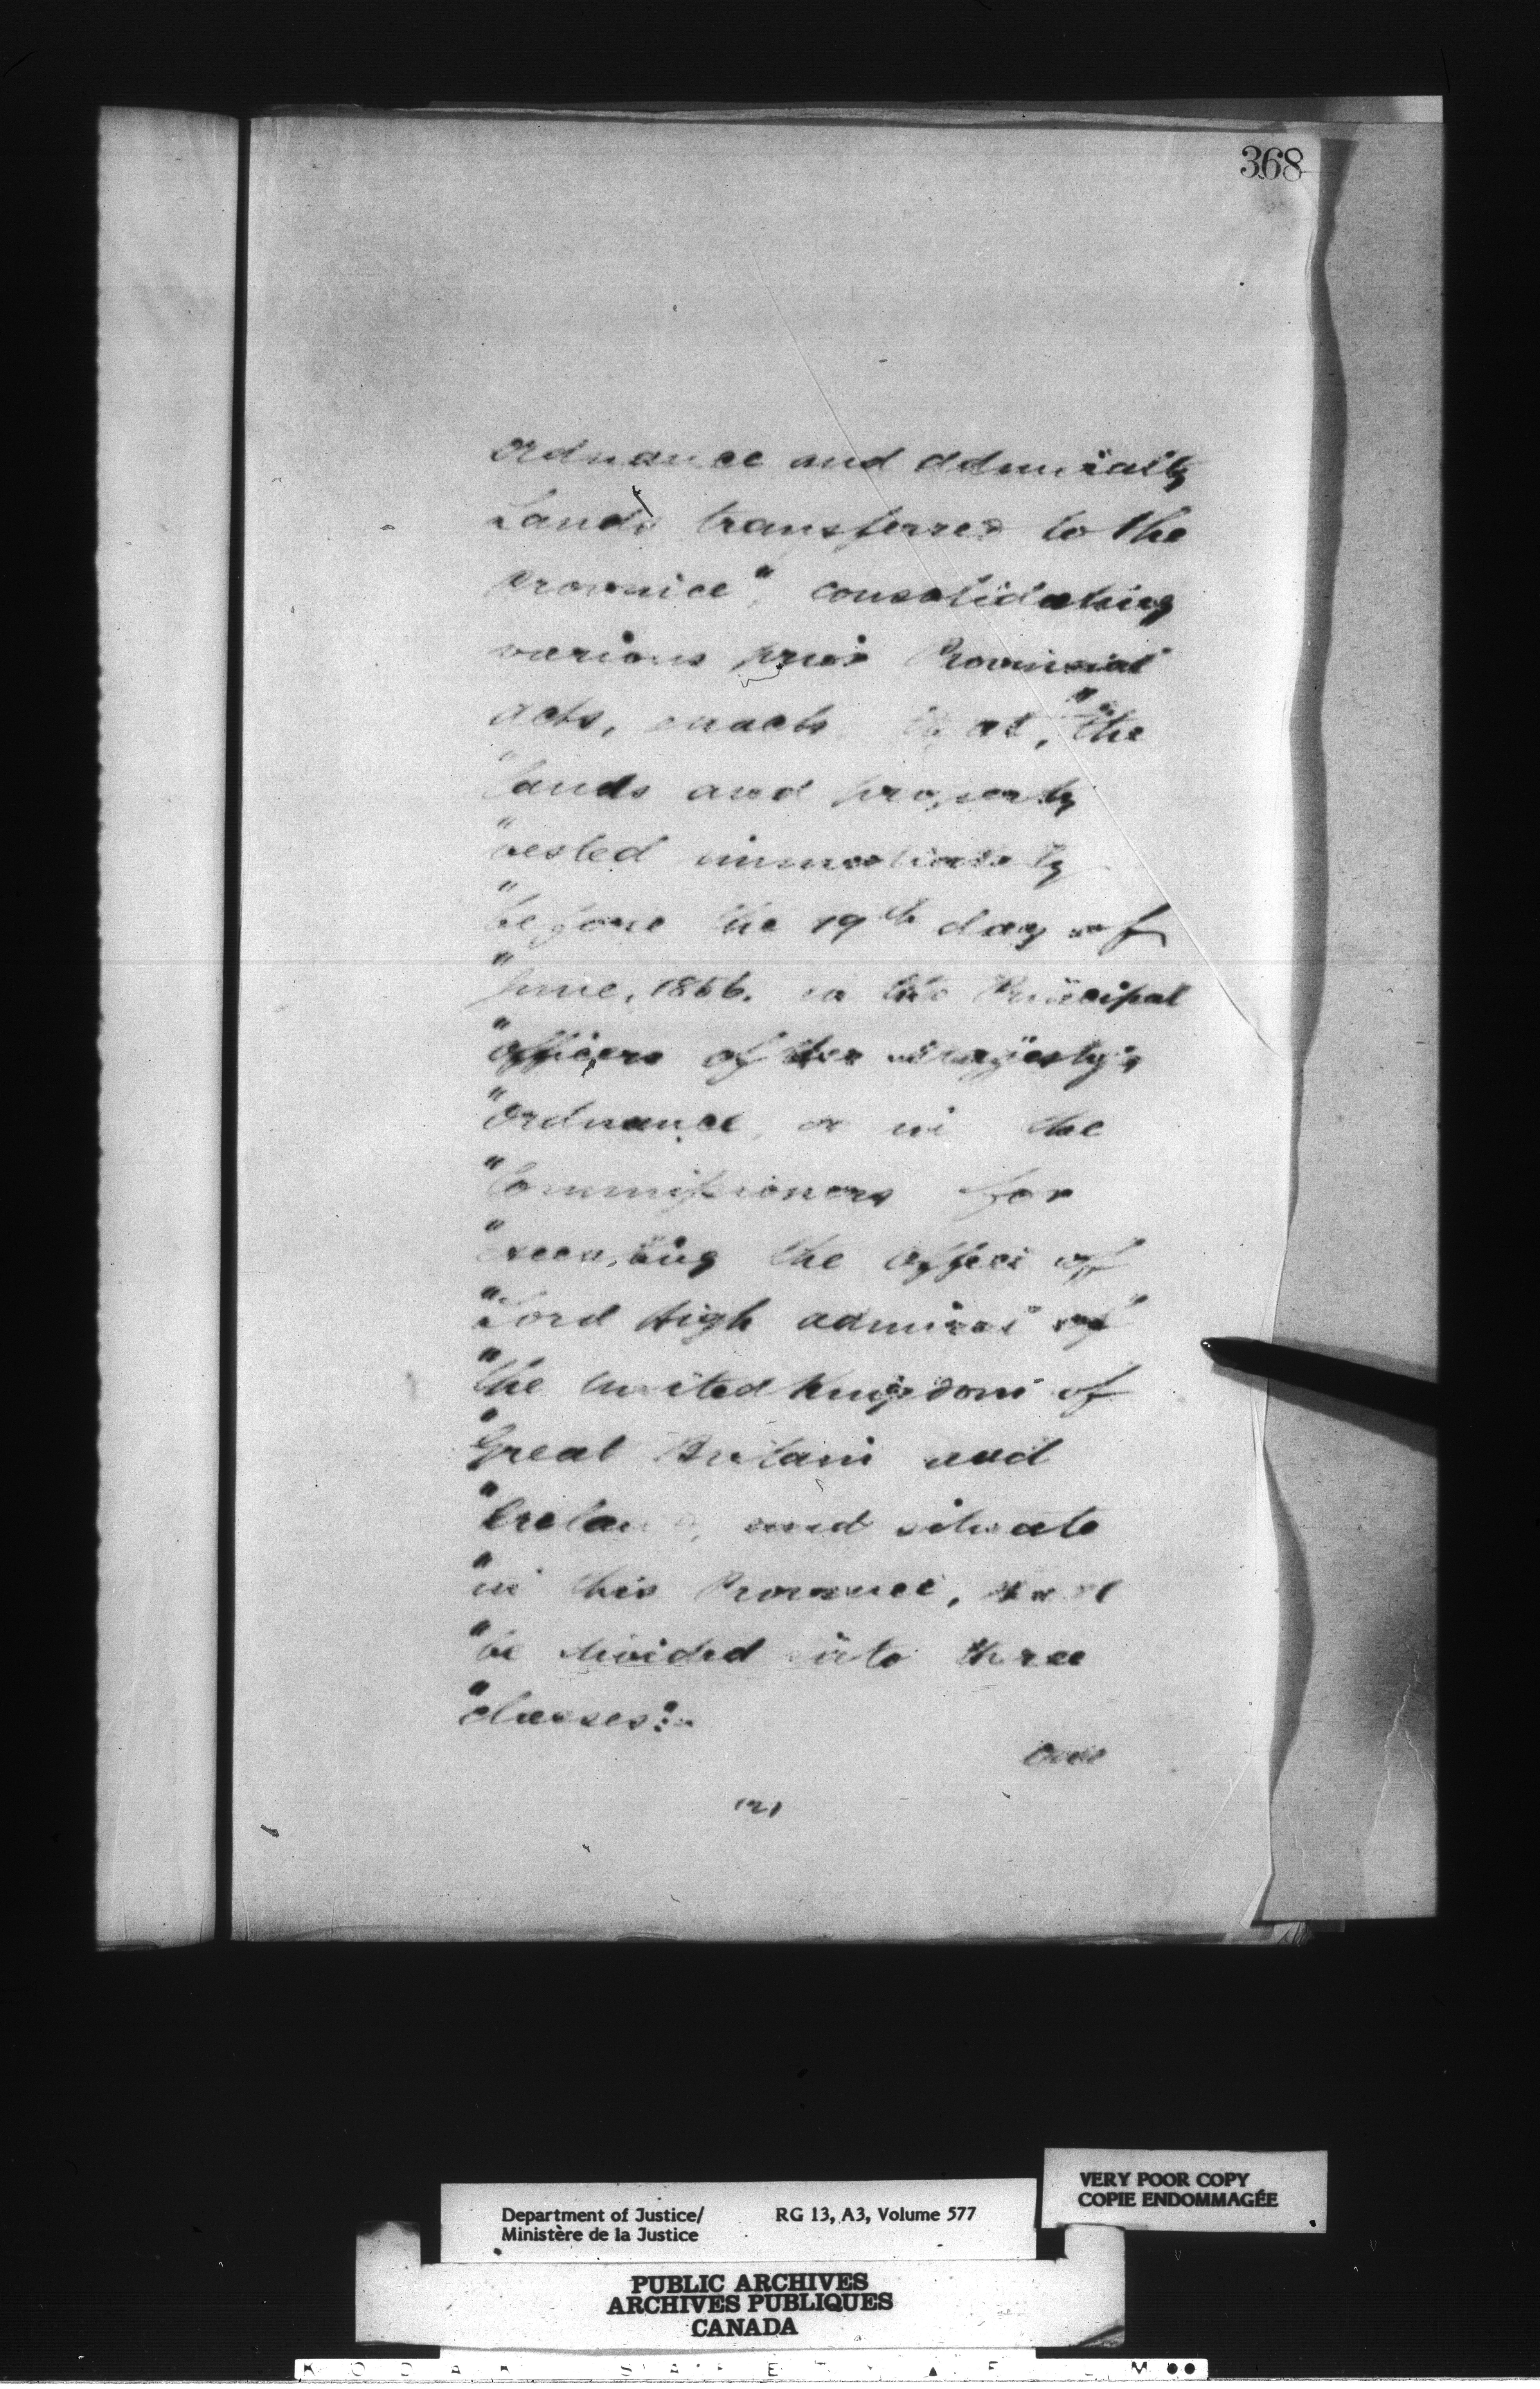 368
Ordnance and Admiralty
Lands transferred to the
Province", consolidating
various prior Provincial
Acts, enacts that, "the
"lands and property
"vested immediately
"before the 19th day of
"June, 1856. in the Principal
"officers of Her Majesty's
"Ordnance, or in the
"Commissioners for
"executing the Office of
"Lord High Admiral of
"the United Kingdom of
"Great Britain and
"Ireland, and situate
"in this Province, shall
"be divided into three
"classes:-
(2)
Department of Justice/
Ministère de la Justice
RG 13, A3, Volume 577
VERY POOR COPY
COPIE ENDOMMAGÉE
PUBLIC ARCHIVES
ARCHIVES PUBLIQUES
CANADA